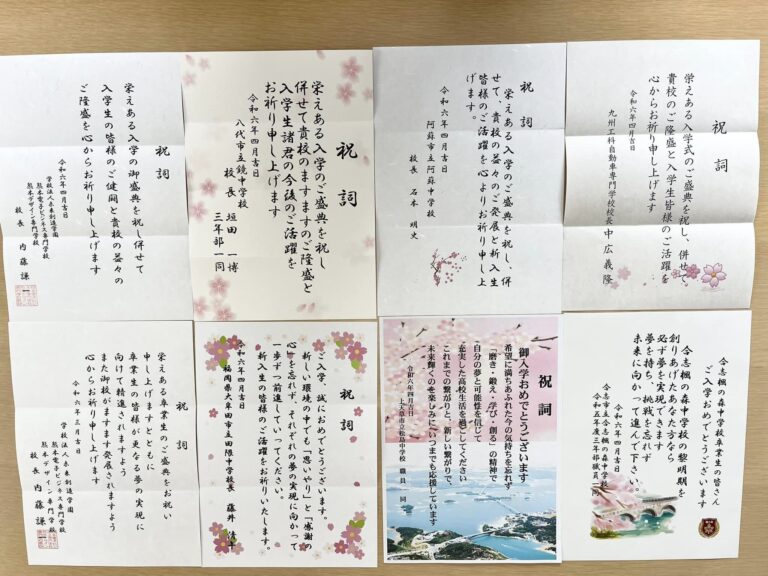 祝詞
栄えある入学の御盛典を祝し併せて
入学生の皆様のご健闘と貴校の益々の
ご隆盛を心からお祈り申し上げます
令和六年四月吉日
学校法人未来創造学園
熊本電子ビジネス専門学校
熊本デザイン専門学校
校長 内藤謙一
祝詞
栄えある入学のご盛典を祝し
併せて貴校のますますのご隆盛と
入学生諸君の今後のご活躍を
お祈り申し上げます
令和六年四月吉日
八代市立鏡中学校
校長 垣田一博
三年部一同
祝詞
栄えある入学のご盛典を祝し、併
せて、貴校の益々のご発展と新入生
皆様のご活躍を心よりお祈り申し上
げます。
令和六年四月吉日
阿蘇市立阿蘇中学校
校長 石本明史
祝詞
栄えある入学式のご盛典を祝し、併せて、
貴校のご隆盛と入学生皆様のご活躍を
心からお祈り申し上げます
令和六年四月吉日
九州工科自動車専門学校校長 中広義隆
祝詞
栄えある卒業生のご盛典をお祝い
申し上げますとともに
卒業生の皆様が更なる夢の実現に
向けて精進されますよう
また御校がますます発展されますよう
心からお祈り申し上げます
令和六年三月吉日
学校法人未来創造学園
熊本電子ビジネス専門学校
熊本デザイン専門学校
校長 内藤謙一
祝詞
ご入学、誠におめでとうございます。
新しい環境の中でも「思いやり」と「感謝の
心」を忘れず、それぞれの夢の実現に向かって
一歩ずつ前進していってください。
新入生の皆様のご活躍をお祈りいたします。
令和六年四月吉日
福岡県大牟田市立田隈中学校長 藤井
祝詞
御入学おめでとうございます
希望に満ちあふれた今の気持ちを忘れず
「磨き・鍛え・学び・創る」の精神で
自分の夢と可能性を信じて
充実した高校生活を過ごしてください
これまでの繋がりと、新しい繋がりで、
未来輝くのを楽しみに いつまでも応援しています
令和六年四月吉日
上天草市立松島中学校 職員一同
合志楓の森中学校卒業生の皆さん
ご入学おめでとうございます
合志楓の森中学校の黎明期を
創りあげたあなた方なら
必ず夢を実現できます
夢を持ち、挑戦を忘れず
未来に向かって進んで下さい。
令和六年四月吉日
合志市立合志楓の森中学校
令和五年度三年部職員一同